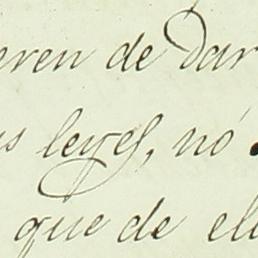 eren de dar
s leyes, nó
que de el